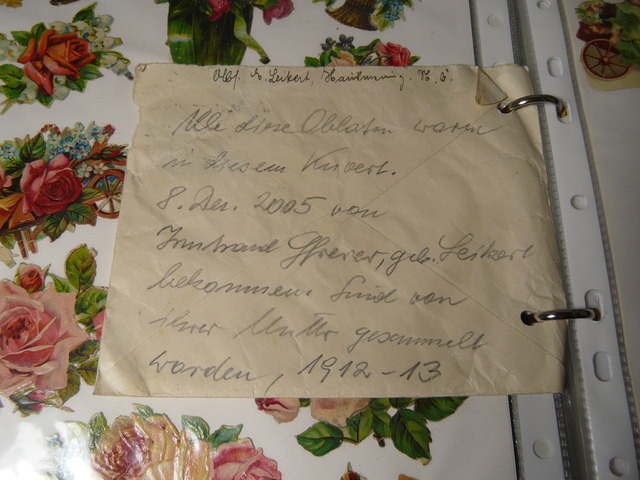 Abs. Leikert,
Alle diese Oblaten waren
in diesem Kuvert.
8. Dez. 2005 von
Irmtraud Pfierer, geb. Leikert
bekommen. Sind von
ihrer Mutter gesammelt
worden, 1912-13